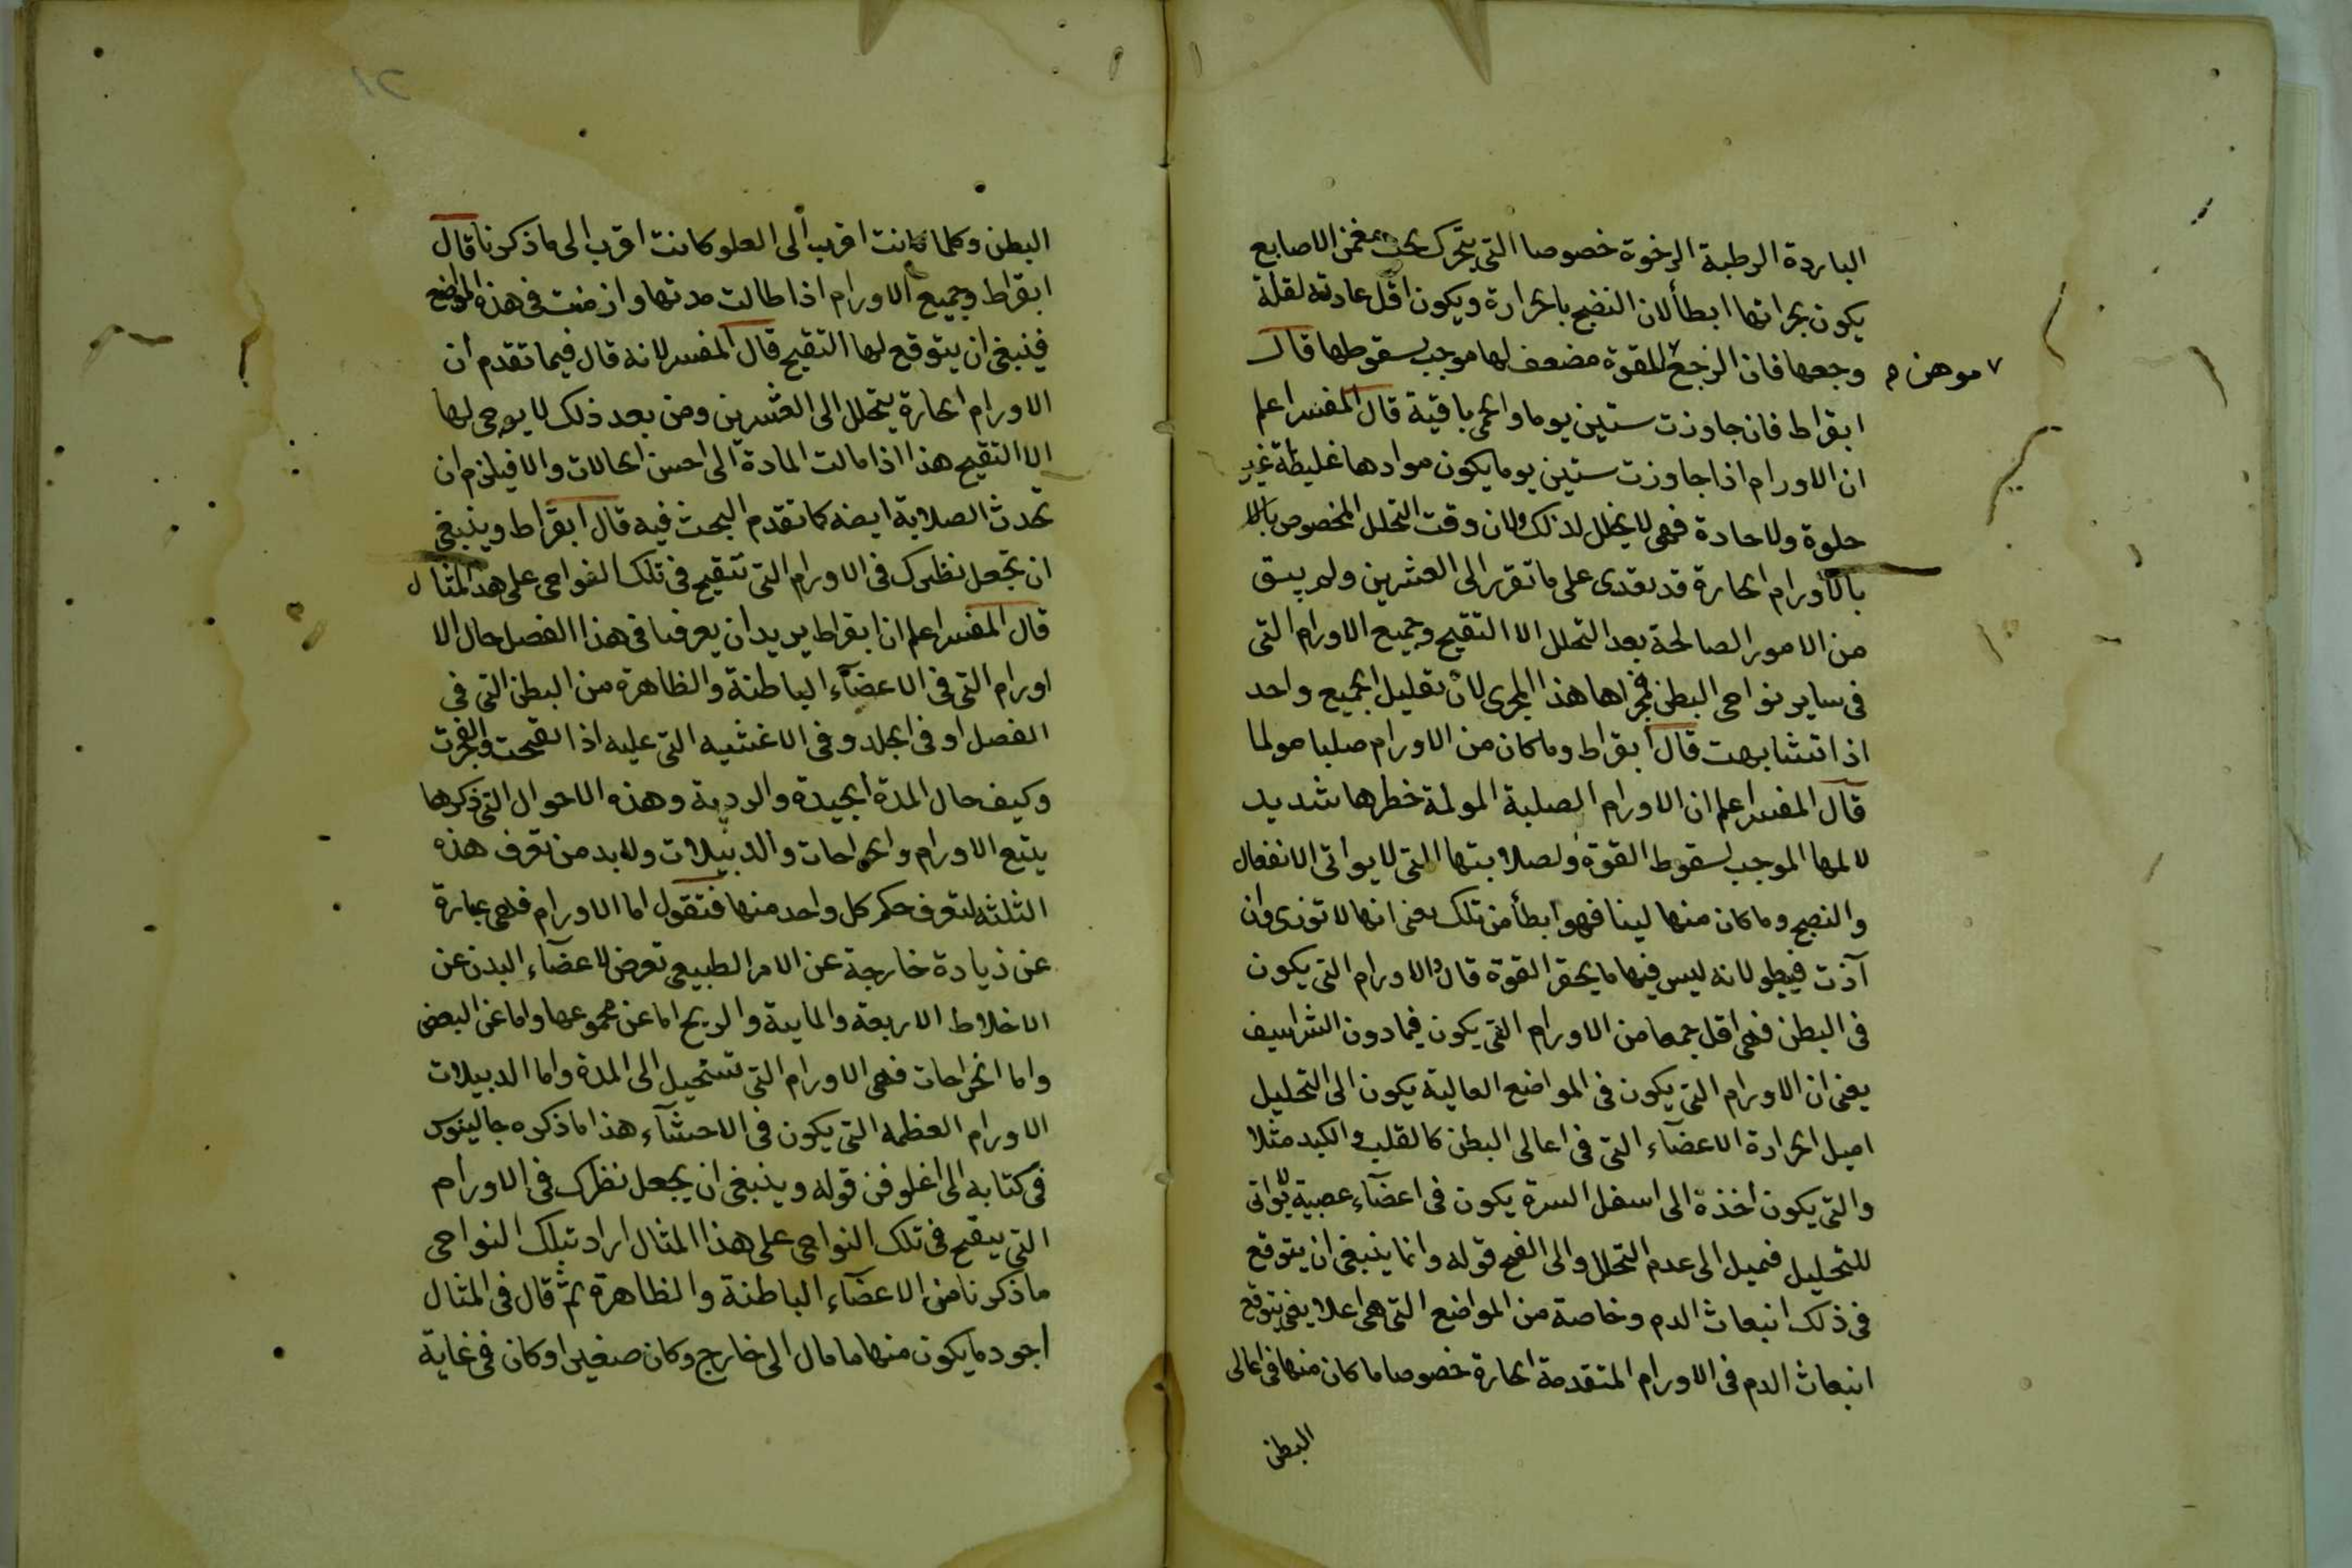 الباردة الرطبة الرخوة خصوصا التي يتحرك تحت مغمز الاصابع
يكون بحرانها ابطأ لان النضج بالحرارة ويكون اقل عادته لقلة
وجعها فان الوجع للقوة مضعف لها موجب لسقوطها قال
موهن م
ابقراط فان جاوزت ستين يوما والحمى باقية قال المفسر اعلم
ان الاورام اذا جاوزت ستين يوما يكون موادها غليظة غير
حلوة ولا حادة فهى لا يتحلل لذلك ولان وقت التحلل المخصوص بالا
بالاورام الحارة قد يعدى على ما تقرر الى العشرين ولم يبق
من الامور الصالحة بعد التحلل الا التقيح وجميع الاورام التى
فى ساير نواحى البطن فمجراها هذا المجرى لان تعليل الجميع واحد
اذا تشابهت قال ابقراط وما كان من الاورام صلبا مولما
قال المفسر اعلم ان الاورام الصلبة المولمة خطرها شديد
لالمها الموجب لسقوط القوة ولصلابتها التى لا يواتى الانفعال
والنضج وما كان منها لينا فهو ابطأ من تلك يعنى انها لا توذى وان
آذت فيطو لانه ليس فيها ما يحقر القوة قال والاورام التى يكون
فى البطن فهى اقل جمعا من الاورام التى يكون فيما دون الشراسيف
يعنى ان الاورام التى يكون فى المواضع العالية يكون الى التحليل
اميل لحرارة الاعضآء التى فى اعالى البطن كالقلب والكبد مثلا
والتى يكون اخذة الى اسفل السرة يكون فى اعضآء عصبية لا يواتى
للتحليل فميل الى عدم التحلل والى القيح قوله وانما ينبغى ان يتوقع
فى ذلك انبعاث الدم وخاصة من المواضع التى هى اعلا يعنى يتوقع
انبعاث الدم فى الاورام المتقدمة الحارة خصوصا ما كان منها فى اعالى
البطن
البطن وكلما كانت اقرب الى العلو كانت اقرب الى ما ذكرنا قال
ابقراط وجميع الاورام اذا طالت مدتها وازمنت فى هذه المواضع
فينبغى ان يتوقع لها التقيح قال المفسر لانه قال فيما تقدم ان
الاورام الحارة يتحلل الى العشرين ومن بعد ذلك لا يرجى لها
الا التقيح هذا اذا مالت المادة الى احسن الحالات والا فيلزم ان
تحدث الصلابة ايضه كما تقدم البحث فيه قال ابقراط وينبغى
ان تجعل نظرك فى الاورام التى تتقيح فى تلك النواحى على هذ المثال
قال المفسر اعلم ان ابقراط يريد ان يعرفنا فى هذا الفصل حال الا
اورام التى فى الاعضآء الباطنة والظاهرة من البطن التى فى
الفصل او فى الجلد وفى الاغشيه التى عليه اذا تقيحت وانفجرت
وكيف حال المدة الجيدة والردية وهذه الاحوال التى ذكرها
يتبع الاورام والخراجات والدبيلات ولابد من تعرف هذه
الثلثه لتعرف حكم كل واحد منها فنقول اما الاورام فهى عبارة
عن زيادة خارجة عن الامر الطبيعى تعرض لاعضآء البدن عن
الاخلاط الاربعة والمايية والريح اما عن مجموعها واما عن البعض
واما الخراجات فهى الاورام التى تستحيل الى المدة واما الدبيلات
الاورام العظمه التى يكون فى الاحشآء هذا ما ذكره جالينوس
فى كتابه الى اغلوقن قوله وينبغى ان يجعل نظرك فى الاورام
التى يتقيح فى تلك النواحى على هذا المثال اراد بتلك النواحى
ما ذكرنا من الاعضآء الباطنة والظاهرة ثم قال فى المثال
اجود ما يكون منها ما مال الى خارج وكان صغيرا وكان فى غاية